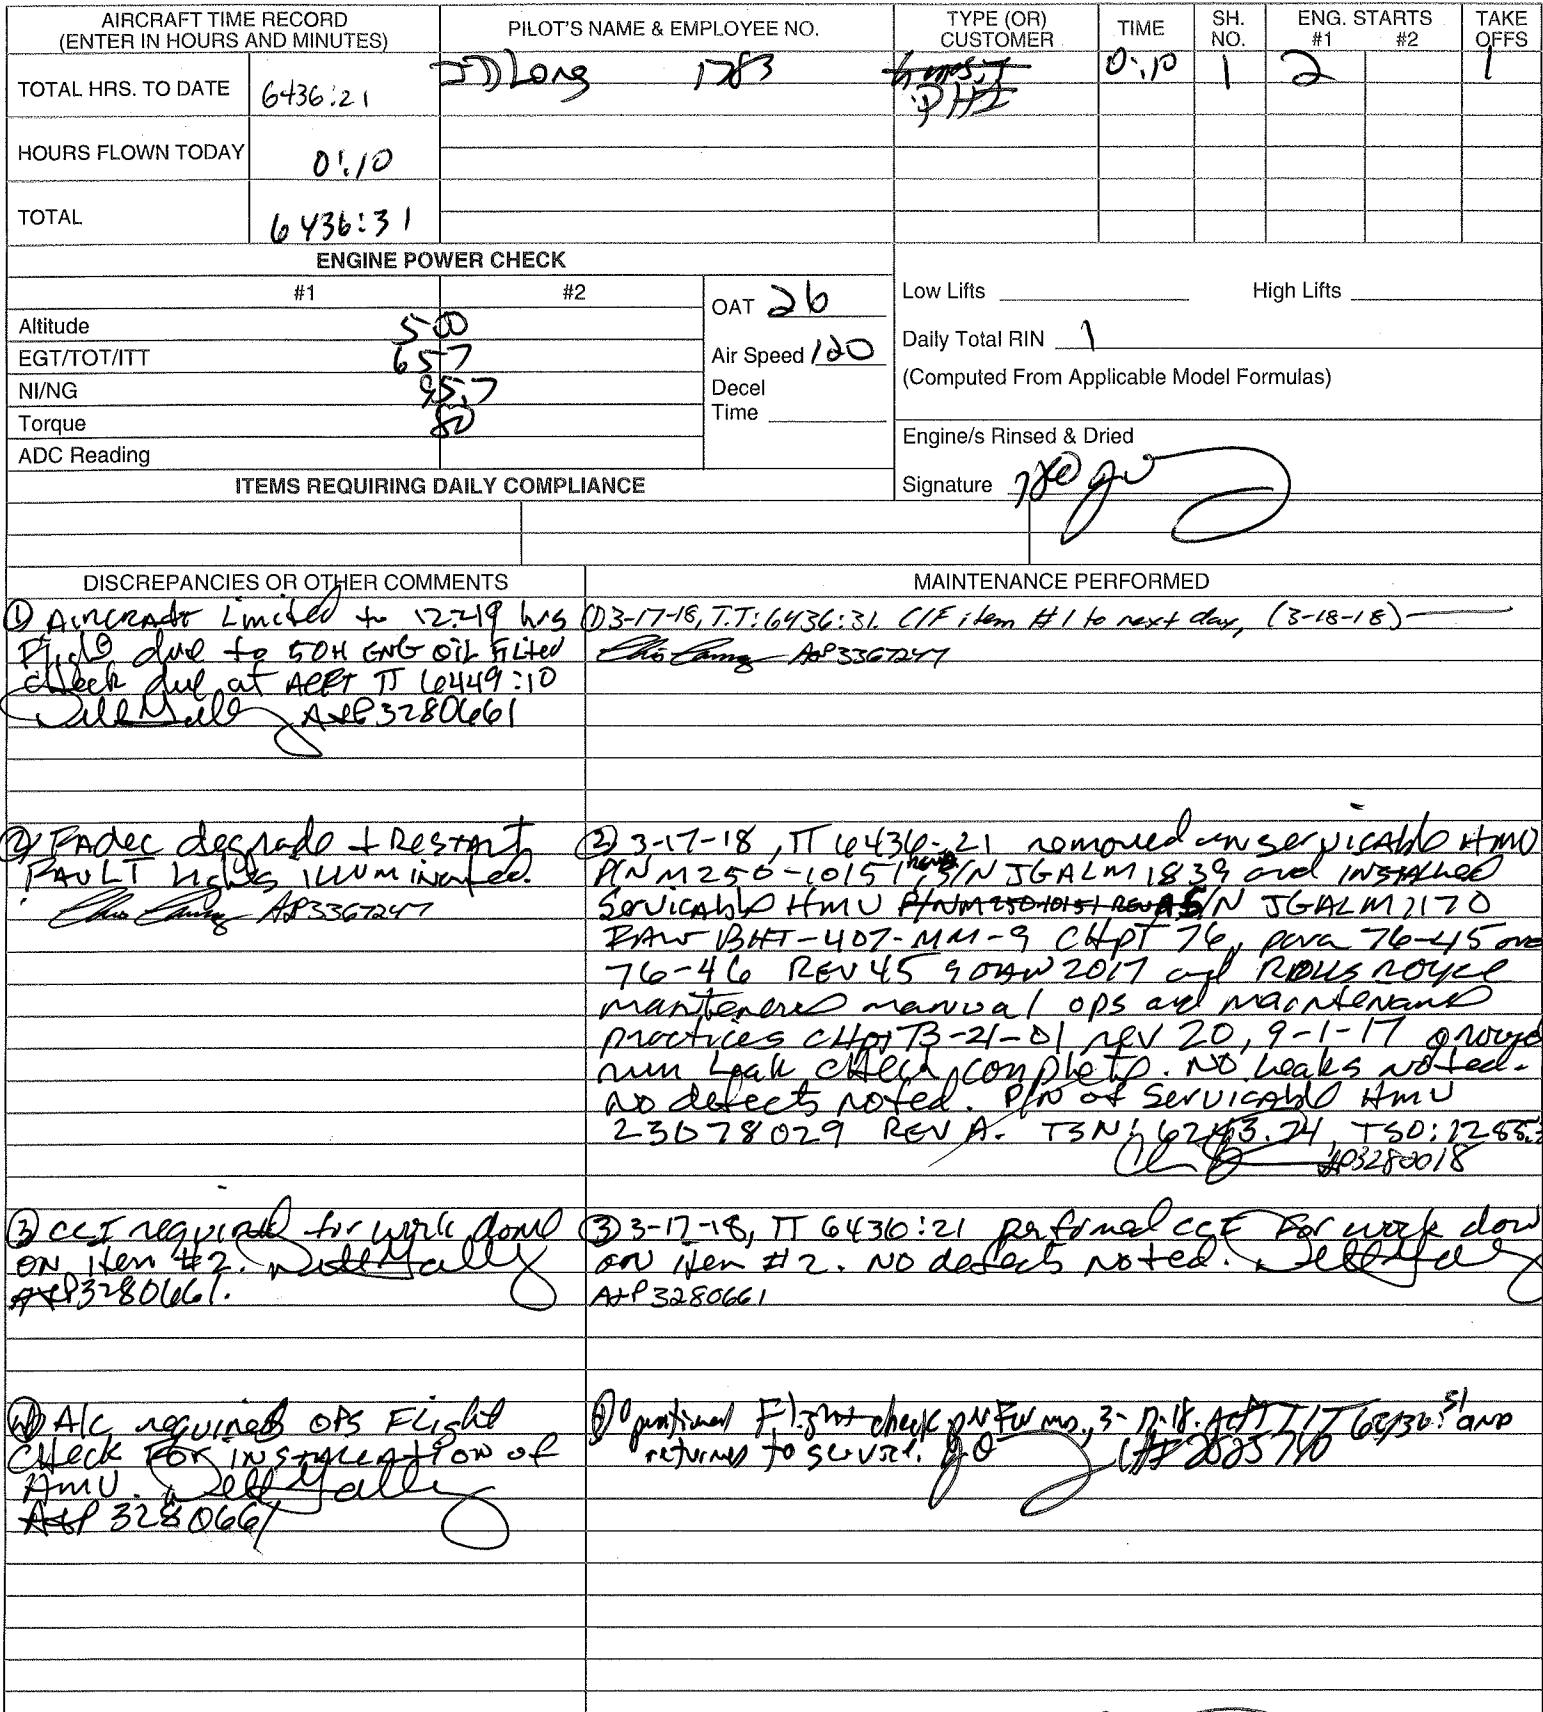 AIRCRAFT TIME RECORD
(ENTER IN HOURS AND MINUTES)
PILOT'S NAME & EMPLOYEE NO.
TYPE (OR)
CUSTOMER
TIME
SH.
NO.
ENG. STARTS
#1 #2
TAKE
OFFS
TOTAL HRS. TO DATE 6436:21
JD Long 1783
PHI
0:10 1 2 1
HOURS FLOWN TODAY 0:10
TOTAL 6436:31
ENGINE POWER CHECK
#1 #2
OAT 26
Low Lifts High Lifts
Altitude 500
EGT/TOT/ITT 657
Air Speed 120
Daily Total RIN 1
NI/NG 95.7
Decel
Time
(Computed From Applicable Model Formulas)
Torque 80
ADC Reading
Engine/s Rinsed & Dried
Signature
ITEMS REQUIRING DAILY COMPLIANCE
DISCREPANCIES OR OTHER COMMENTS
① Aircraft Limited to 12:49 hrs
Flight due to 50H ENG OIL Filter
check due at ACFT TT 6449:10
A&P 3280661
② Fadec degrade + Restart
FAULT Lights illuminated.
AP3367247
③ CCI required for work done
on item #2.
A&P3280661.
④ A/C requires OPS Flight
CHECK FOR INSTALLATION of
HMU.
A&P 3280661
MAINTENANCE PERFORMED
① 3-17-18, T.T.: 6436:31. C/F item #1 to next day, (3-18-18)
A&P3367247
② 3-17-18, TT 6436:21 removed unservicable HMU
P/N M250-10151 S/N JGALM1839 and INSTALLED
Servicable HMU P/N M250-10151 REV A S/N JGALM1170
IAW BHT-407-MM-9 CHPT 76, para 76-45 and
76-46 REV 45 9 JAN 2017 and Rolls royce
maintenance manual ops and maintenance
practices CHpt 73-21-01 rev 20, 9-1-17 ground
run Leak check complete. No Leaks noted.
No defects noted. P/N of Servicable HMU
23078029 REV A. TSN: 6243.74, TSO:
AP3280018
③ 3-17-18, TT 6436:21 performed CCI for work done
on item #2. No defects noted.
A&P 3280661
④ Operational Flight check performed, 3-17-18. Acft TT 6436:31 and
returned to service.